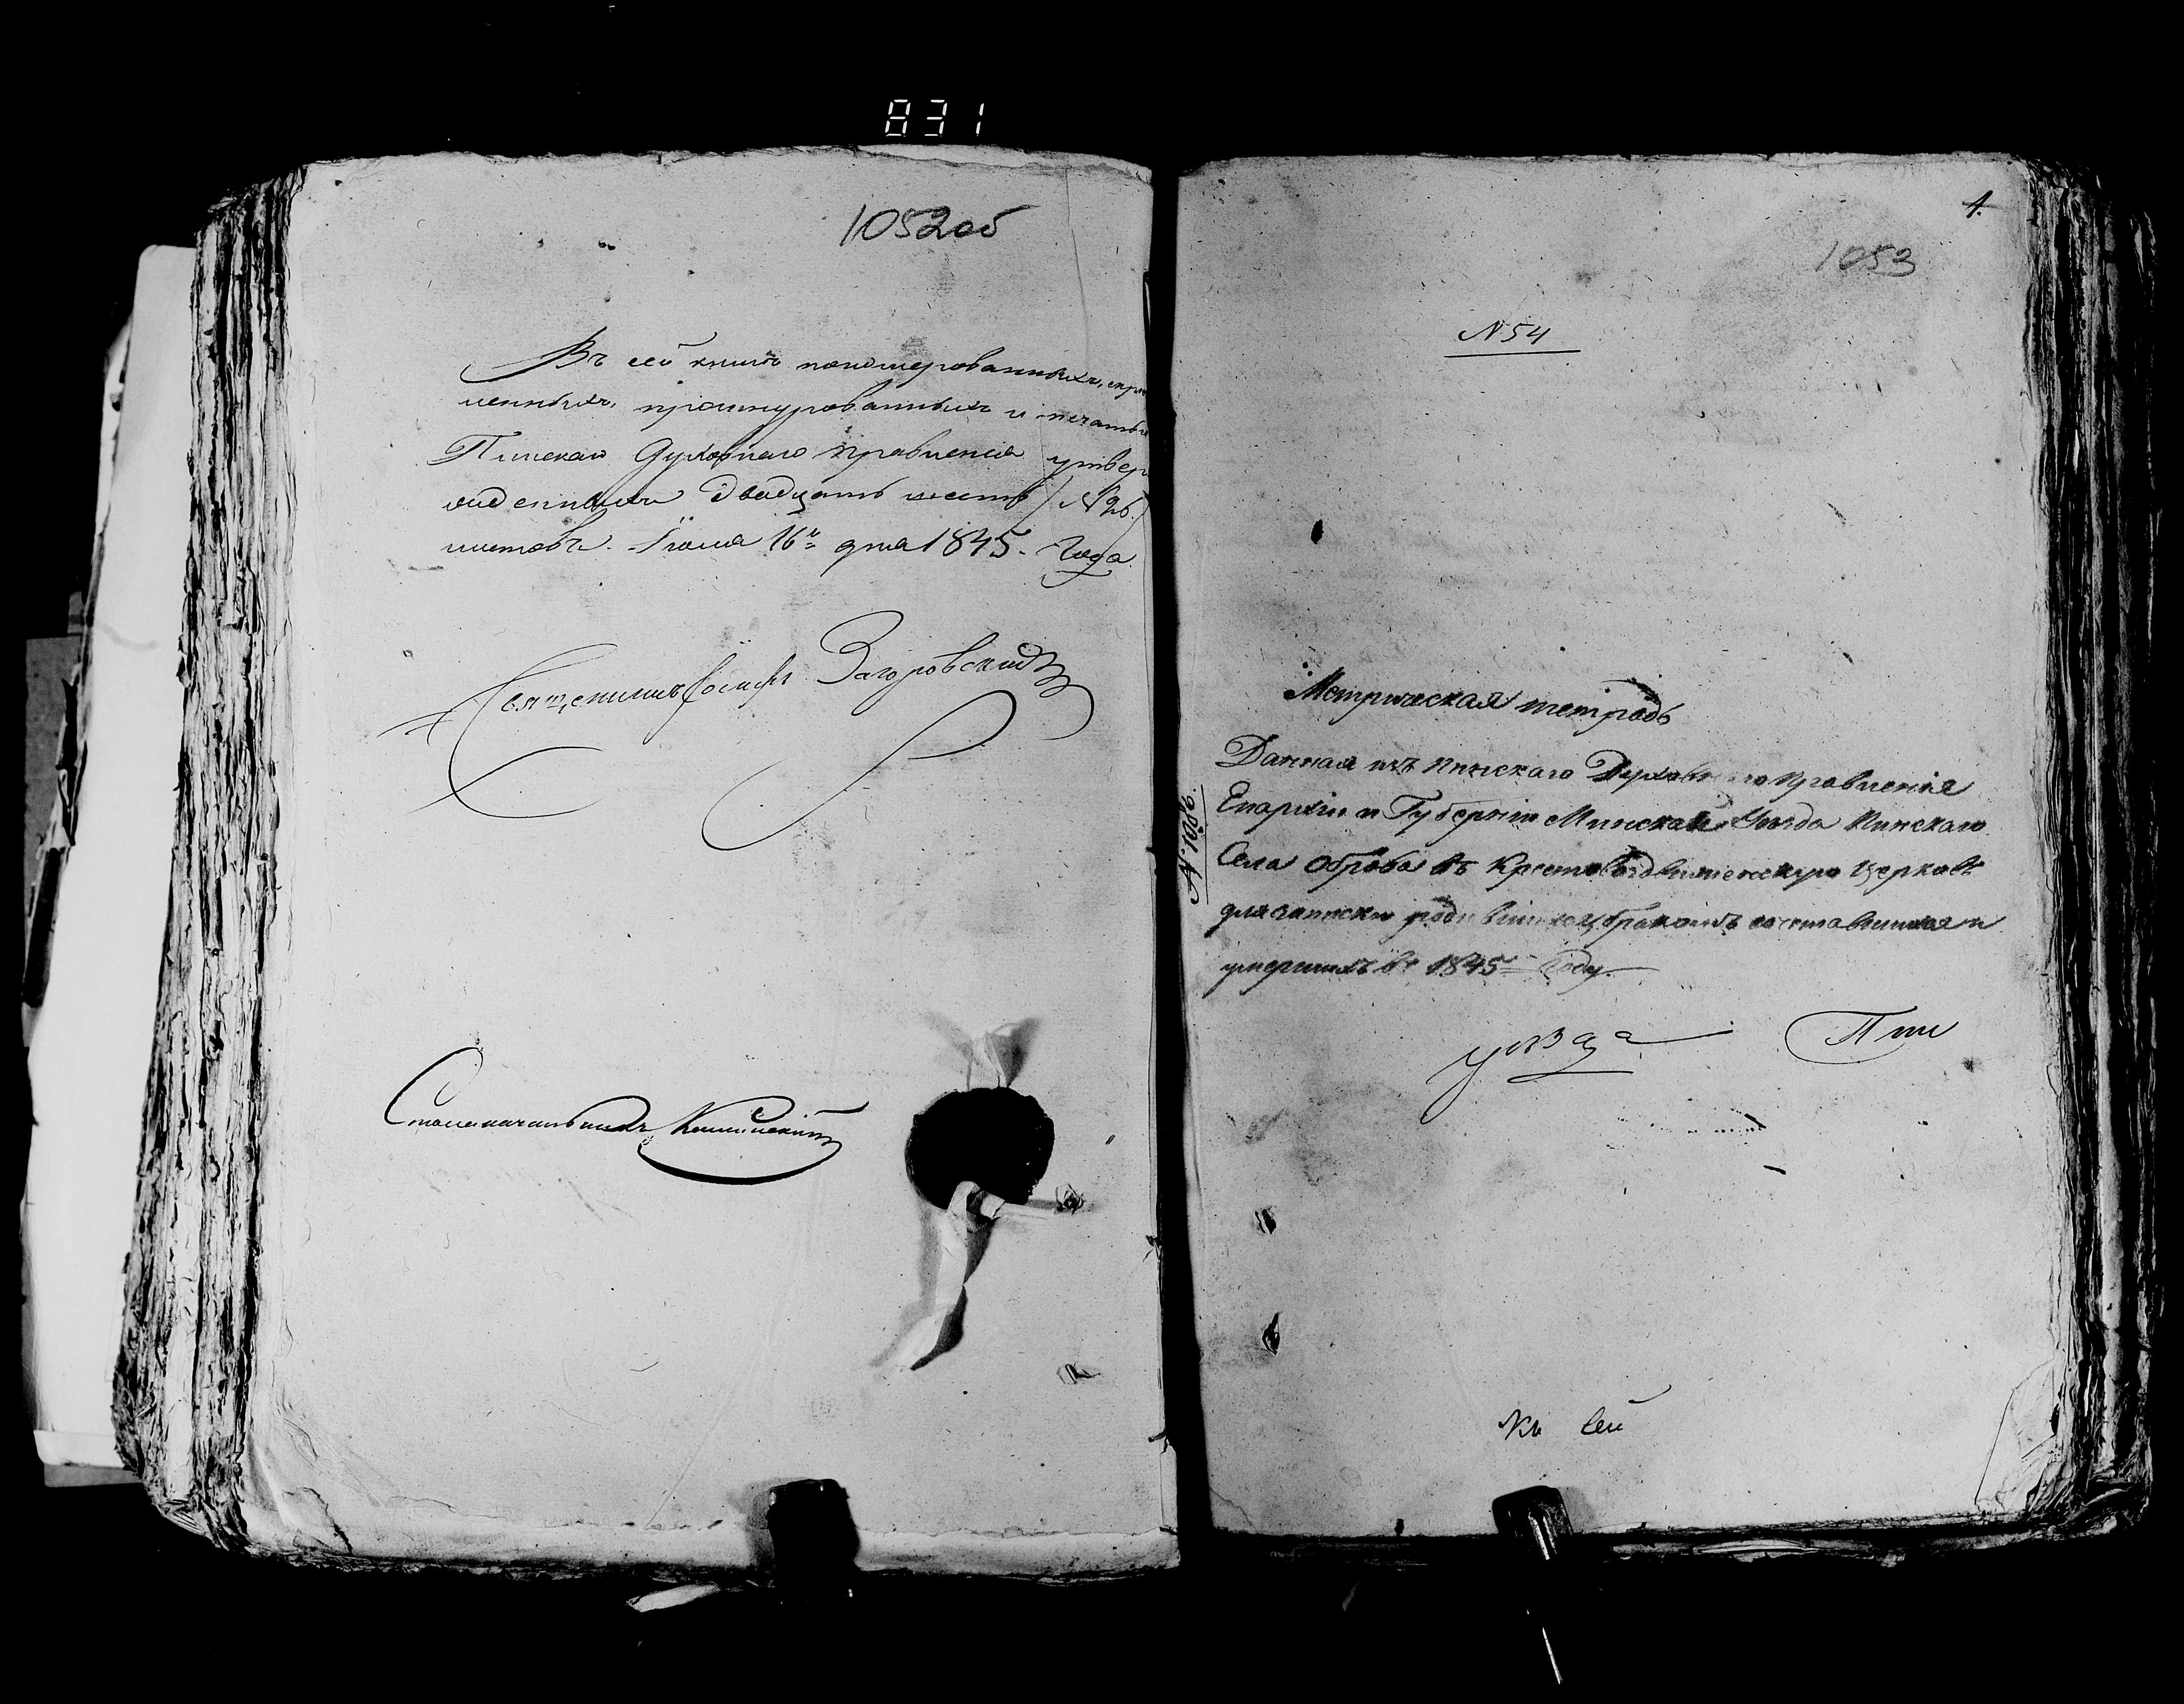 831
1052об
Въ сей книгѣ пономерованныхъ, скреп
ленныхъ, прошнурованныхъ и печатью
Пинскаго Духовнаго Правленія утвер
жденныхъ двадцать шесть / N 26. /
листовъ. Іюля 16го дня 1845. Года
Священникъ Іосифъ Загоровскій
Столоначальникъ
1.
1053
N 54
Метрическая тетрадь
Данная изъ Пинскаго Духовнаго Правленія
Епархіи и Губерніи Минской Уѣзда Пинскаго
Села Оброва въ Крестовоздвиженскую Церковь
для записки родившихся, бракомъ сочетавшихся и
умершихъ въ 1845м Году.
N. 1086.
уѣзда Пин
Къ сей